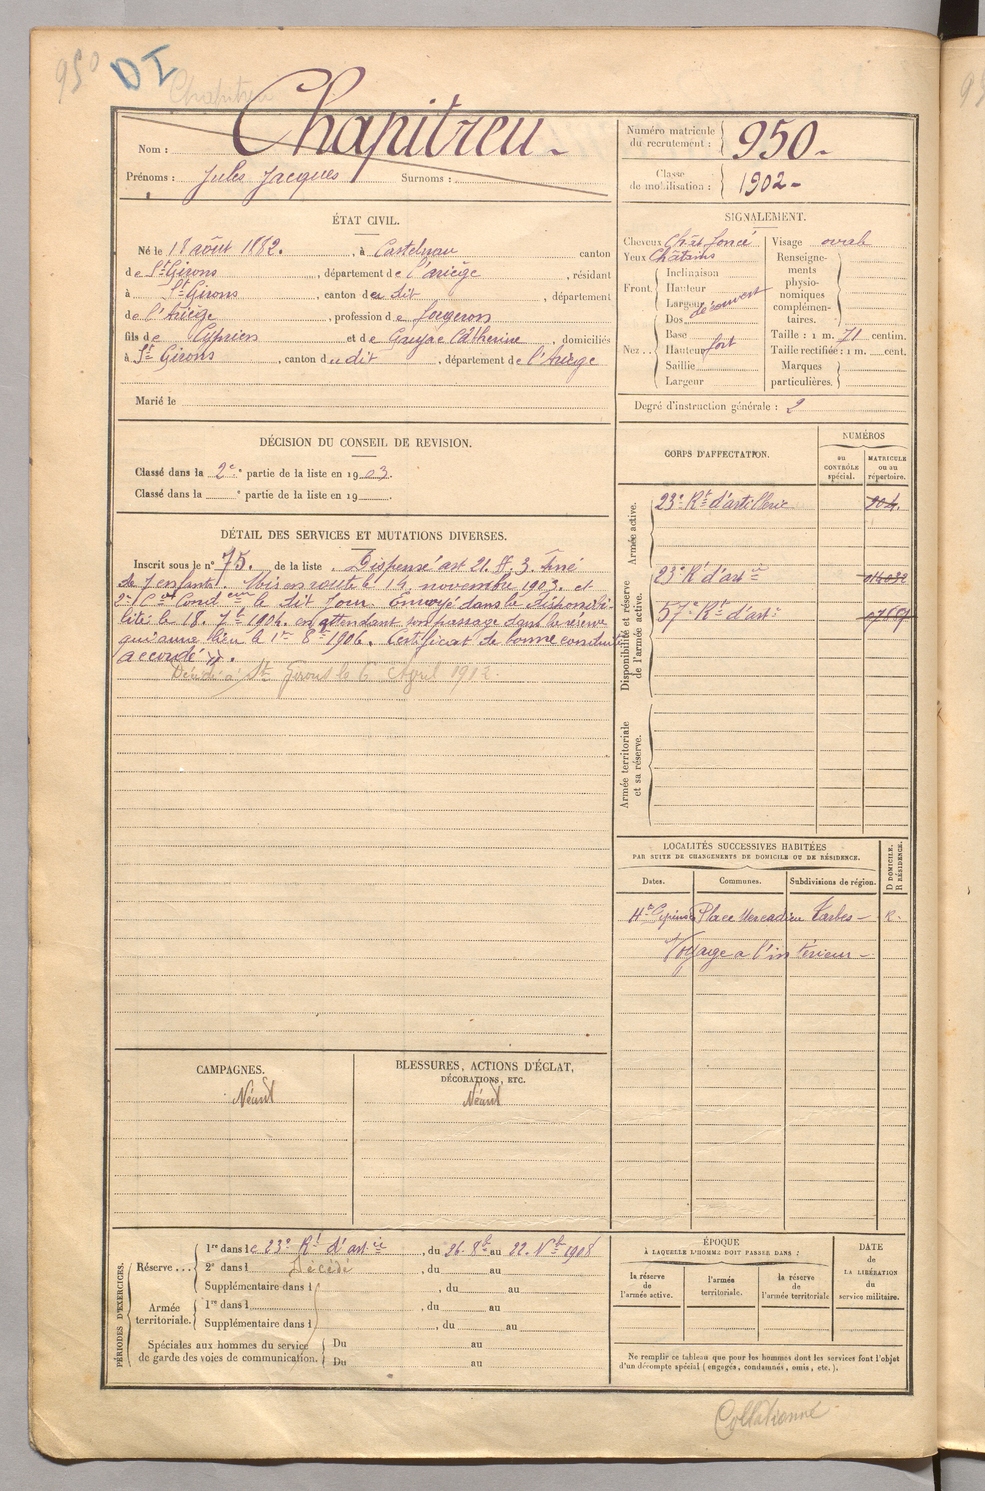 950 DI Chapitreu
Nom : Chapitreu
Prénoms : Jules Jacques Surnoms :
Numéro matricule du recrutement : 950
Classe de mobilisation : 1902
ÉTAT CIVIL.
Né le 18 août 1882. , à Castelnau canton
de St Girons , département de l'ariège , résidant
à St Girons , canton du dit , département
de l'Ariège , profession de forgeron
fils de Cyprien et de Catherine , domiciliés
à St Girons , canton du dit , département de l'Ariège
Marié le
SIGNALEMENT.
Cheveux Chât foncé Visage ovale
Yeux Châtains
Renseignements physionomiques complémentaires.
Front. Inclinaison
Hauteur
Largeur découvert
Dos
Nez . . Base
Hauteur fort
Saillie
Largeur
Taille : 1 m. 71 centim.
Taille rectifiée : 1 m. cent.
Marques particulières.
Degré d'instruction générale : 2
DÉCISION DU CONSEIL DE REVISION.
Classé dans la 2e partie de la liste en 1903.
Classé dans la ° partie de la liste en 19 .
DÉTAIL DES SERVICES ET MUTATIONS DIVERSES.
Inscrit sous le n° 75. de la liste . Dispensé art 21. §. 3. aîné
de 7 enfants. Mis en route le 14 novembre 1903. et
2e Cer Condeur le dit jour. Envoyé dans la disponibi-
lité le 18. 7bre 1904. en attendant son passage dans la réserve
qui aura lieu le 1er 8bre 1906. Certificat de bonne conduite
accordé ».
Décédé à St Girons le 6 Avril 1912.
CORPS D'AFFECTATION.
NUMÉROS
au CONTRÔLE spécial.
MATRICULE ou au répertoire.
Armée active.
23e Rt d'artillerie
Disponibilité et réserve de l'armée active.
23e Rt d'artie
57e Rt d'arti
Armée territoriale et sa réserve.
LOCALITÉS SUCCESSIVES HABITÉES
PAR SUITE DE CHANGEMENTS DE DOMICILE OU DE RÉSIDENCE.
Dates. Communes. Subdivisions de région. D DOMICILE. R RÉSIDENCE.
Place Mercadieu Tarbes - R.
Voyage a l'intérieur -
CAMPAGNES.
Néant
BLESSURES, ACTIONS D'ÉCLAT,
DÉCORATIONS, ETC.
Néant
PÉRIODES D'EXERCICES.
Réserve . . . 1re dans le 23e Rt d'artie , du 26. 8bre au 22. Nbre 1908
2e dans l Décédé , du au
Supplémentaire dans l , du au
Armée territoriale. 1re dans l , du au
Supplémentaire dans l , du au
Spéciales aux hommes du service de garde des voies de communication. Du au
Du au
ÉPOQUE
À LAQUELLE L'HOMME DOIT PASSER DANS :
la réserve de l'armée active.
l'armée territoriale.
la réserve de l'armée territoriale
DATE de LA LIBÉRATION du service militaire.
Ne remplir ce tableau que pour les hommes dont les services font l'objet
d'un décompte spécial (engagés, condamnés, omis, etc.).
Collationné